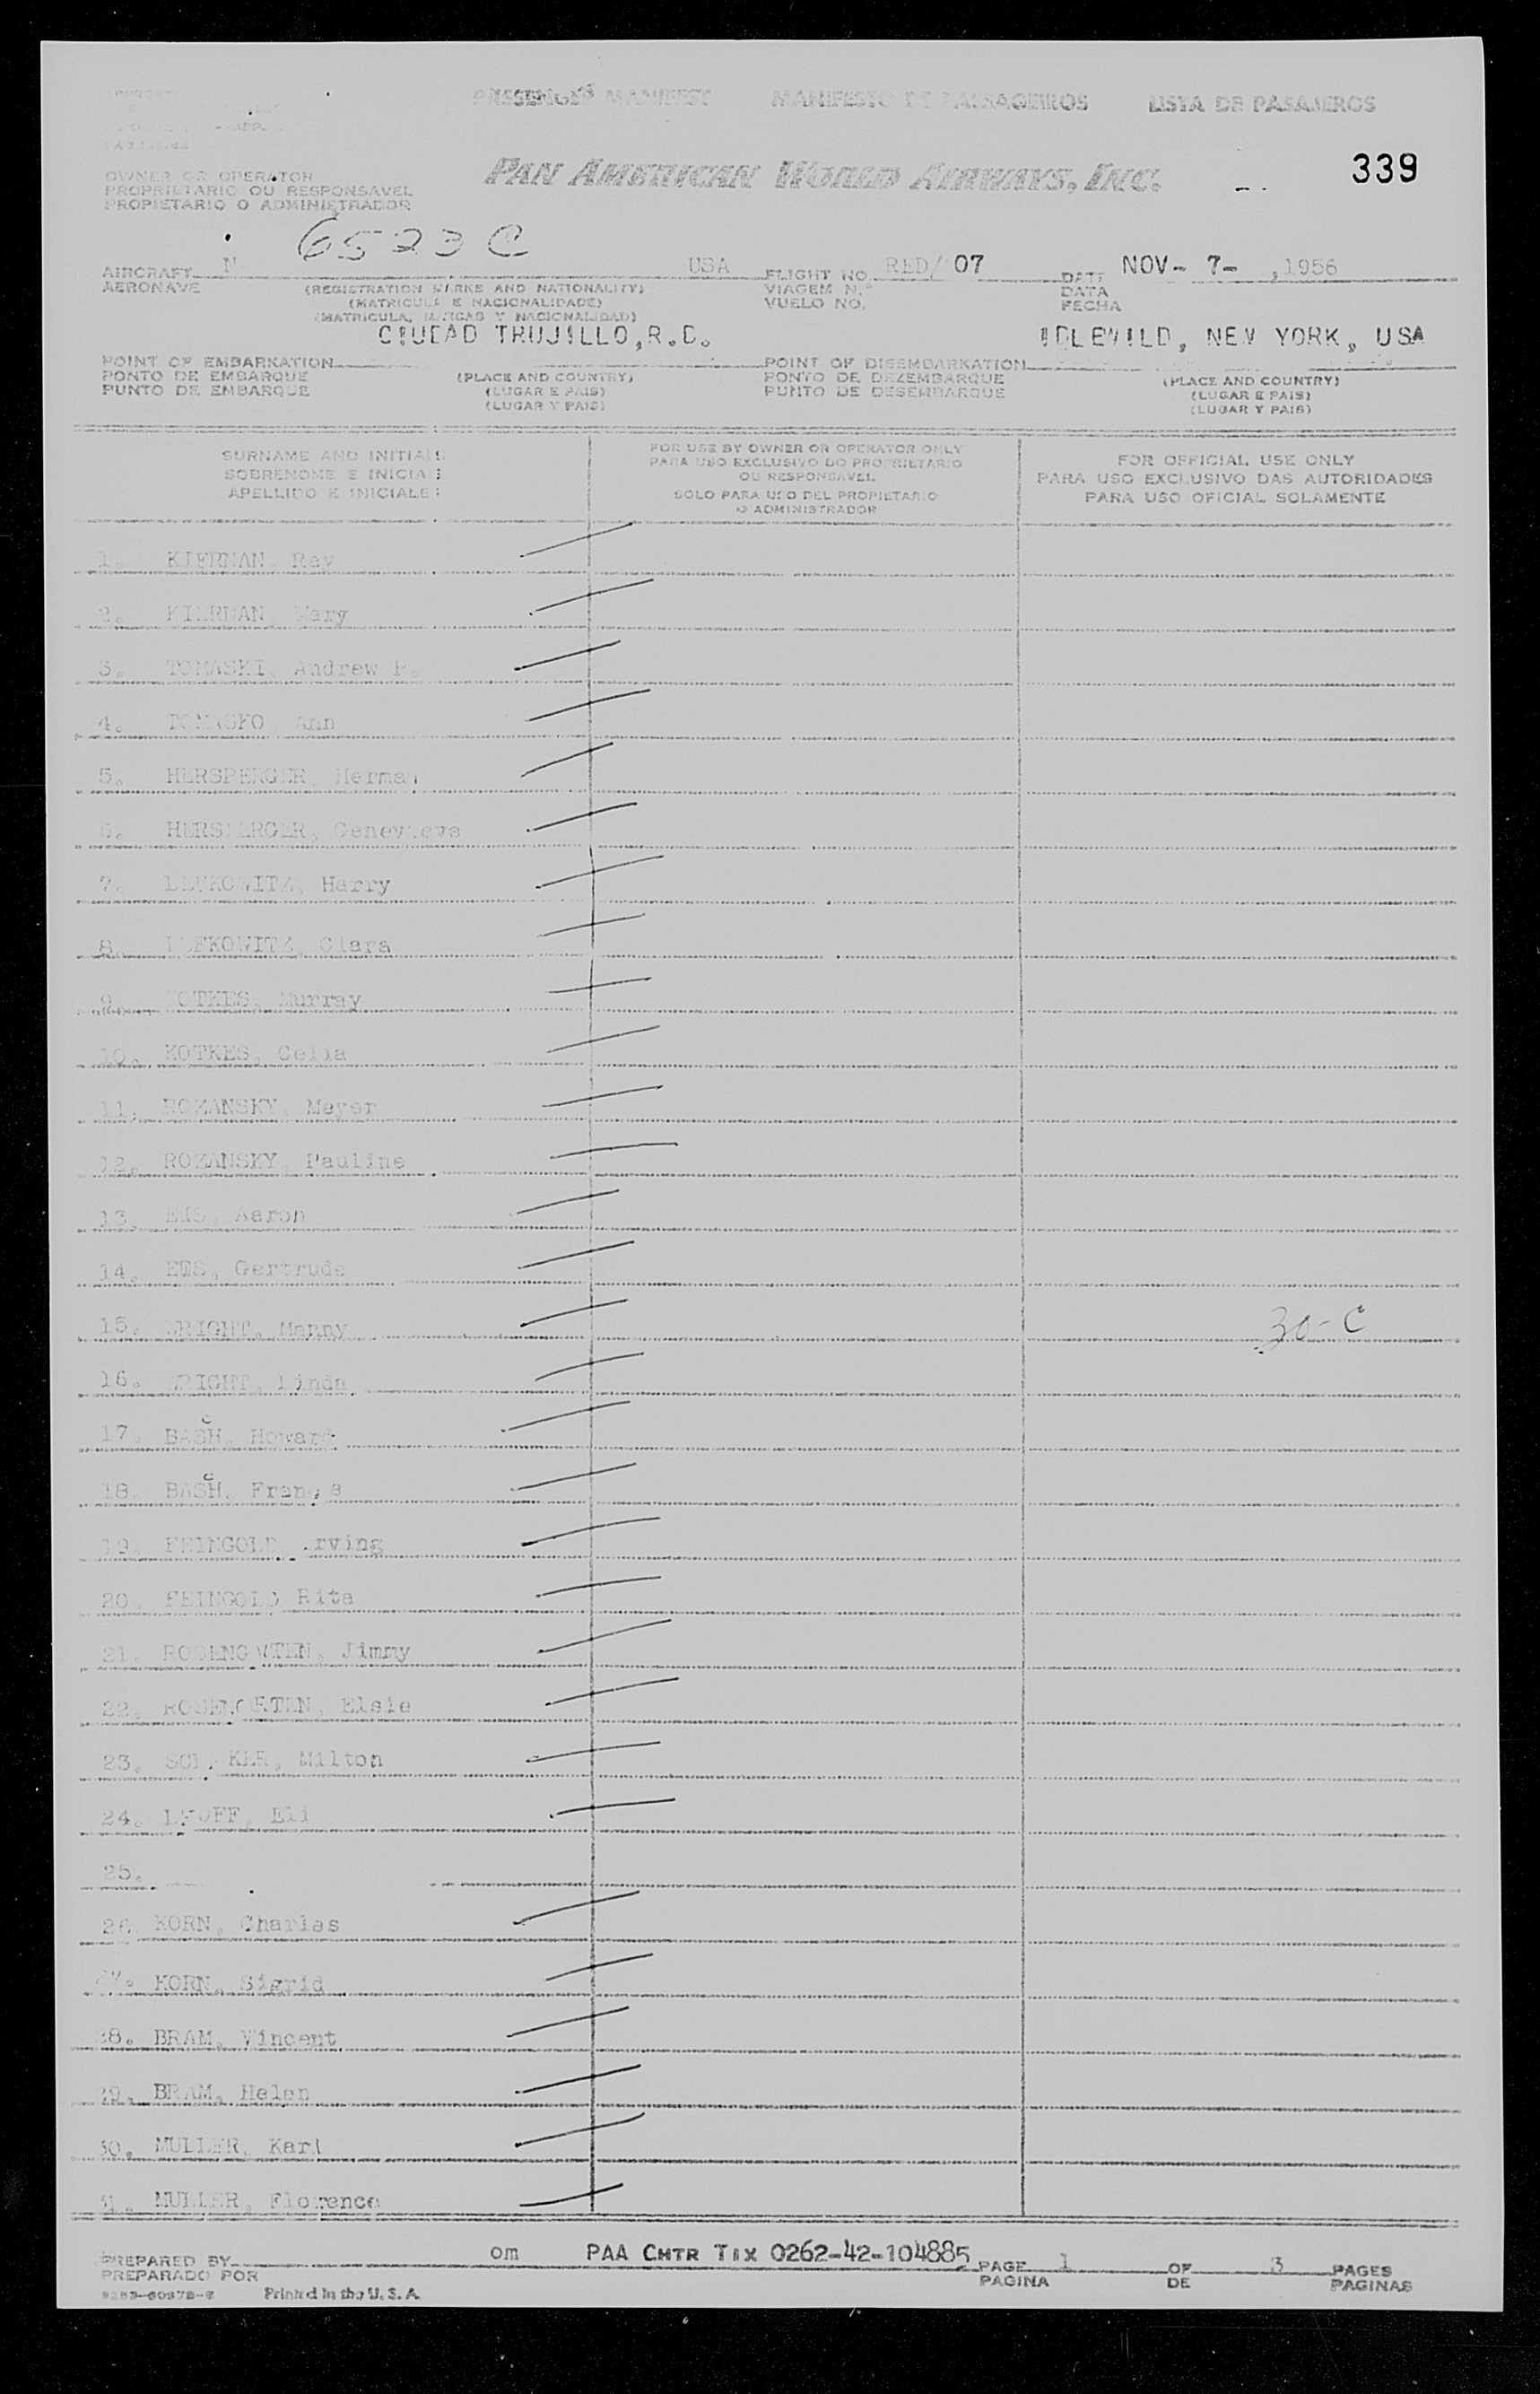 PASSENGER MANIFEST MANIFESTO DE PASSAGEIROS LISTA DE PASAJEROS
OWNER OR OPERATOR
PROPRIETARIO OU RESPONSAVEL
PROPIETARIO O ADMINISTRADOR
PAN AMERICAN WORLD AIRWAYS, INC.
339
AIRCRAFT N 6523C USA FLIGHT NO. RED/ 07 DATE NOV- 7- ,1956
AERONAVE (REGISTRATION MARKS AND NATIONALITY) VIAGEM N.º DATA
(MATRICULA E NACIONALIDADE) VUELO NO. FECHA
(MATRICULA, MARCAS Y NACIONALIDAD)
CIUDAD TRUJILLO,R.D. IDLEWILD, NEW YORK, USA
POINT OF EMBARKATION POINT OF DISEMBARKATION
PONTO DE EMBARQUE (PLACE AND COUNTRY) PONTO DE DEZEMBARQUE (PLACE AND COUNTRY)
PUNTO DE EMBARQUE (LUGAR E PAIS) PUNTO DE DESEMBARQUE (LUGAR E PAIS)
(LUGAR Y PAIS) (LUGAR Y PAIS)
SURNAME AND INITIALS FOR USE BY OWNER OR OPERATOR ONLY FOR OFFICIAL USE ONLY
SOBRENOME E INICIAES PARA USO EXCLUSIVO DO PROPRIETARIO PARA USO EXCLUSIVO DAS AUTORIDADES
APELLIDO E INICIALES OU RESPONSAVEL PARA USO OFICIAL SOLAMENTE
SOLO PARA USO DEL PROPIETARIO
O ADMINISTRADOR
1. KIERNAN, Ray
2. KIERNAN, Mary
3. TOMASKI, Andrew P.
4. TOMASKO, Ann
5. HERSPERGER, Herman
6. HERSPERGER, Genevieve
7. LEFKOWITZ, Harry
8. LEFKOWITZ, Clara
9. KOTKES, Murray
10. KOTKES, Celia
11. ROZANSKY, Meyer
12. ROZANSKY, Pauline
13. EIS, Aaron
14. EIS, Gertrude
15. WRIGHT, Manny 30-C
16. WRIGHT, Linda
17. BASH, Howard
18. BASH, Frances
19. FEINGOLD, Irving
20. FEINGOLD, Rita
21. ROSENGARTEN, Jimmy
22. ROSENGARTEN, Elsie
23. Milton
24. Eli
25.
26. KORN, Charles
27. KORN, Sigrid
28. BRAM, Vincent
29. BRAM, Helen
30. MULLER, Karl
31. MULLER, Florence
PREPARED BY om PAA CHTR TIX 0262-42-104885 PAGE 1 OF 3 PAGES
PREPARADO POR PAGINA DE PAGINAS
Printed in the U. S. A.